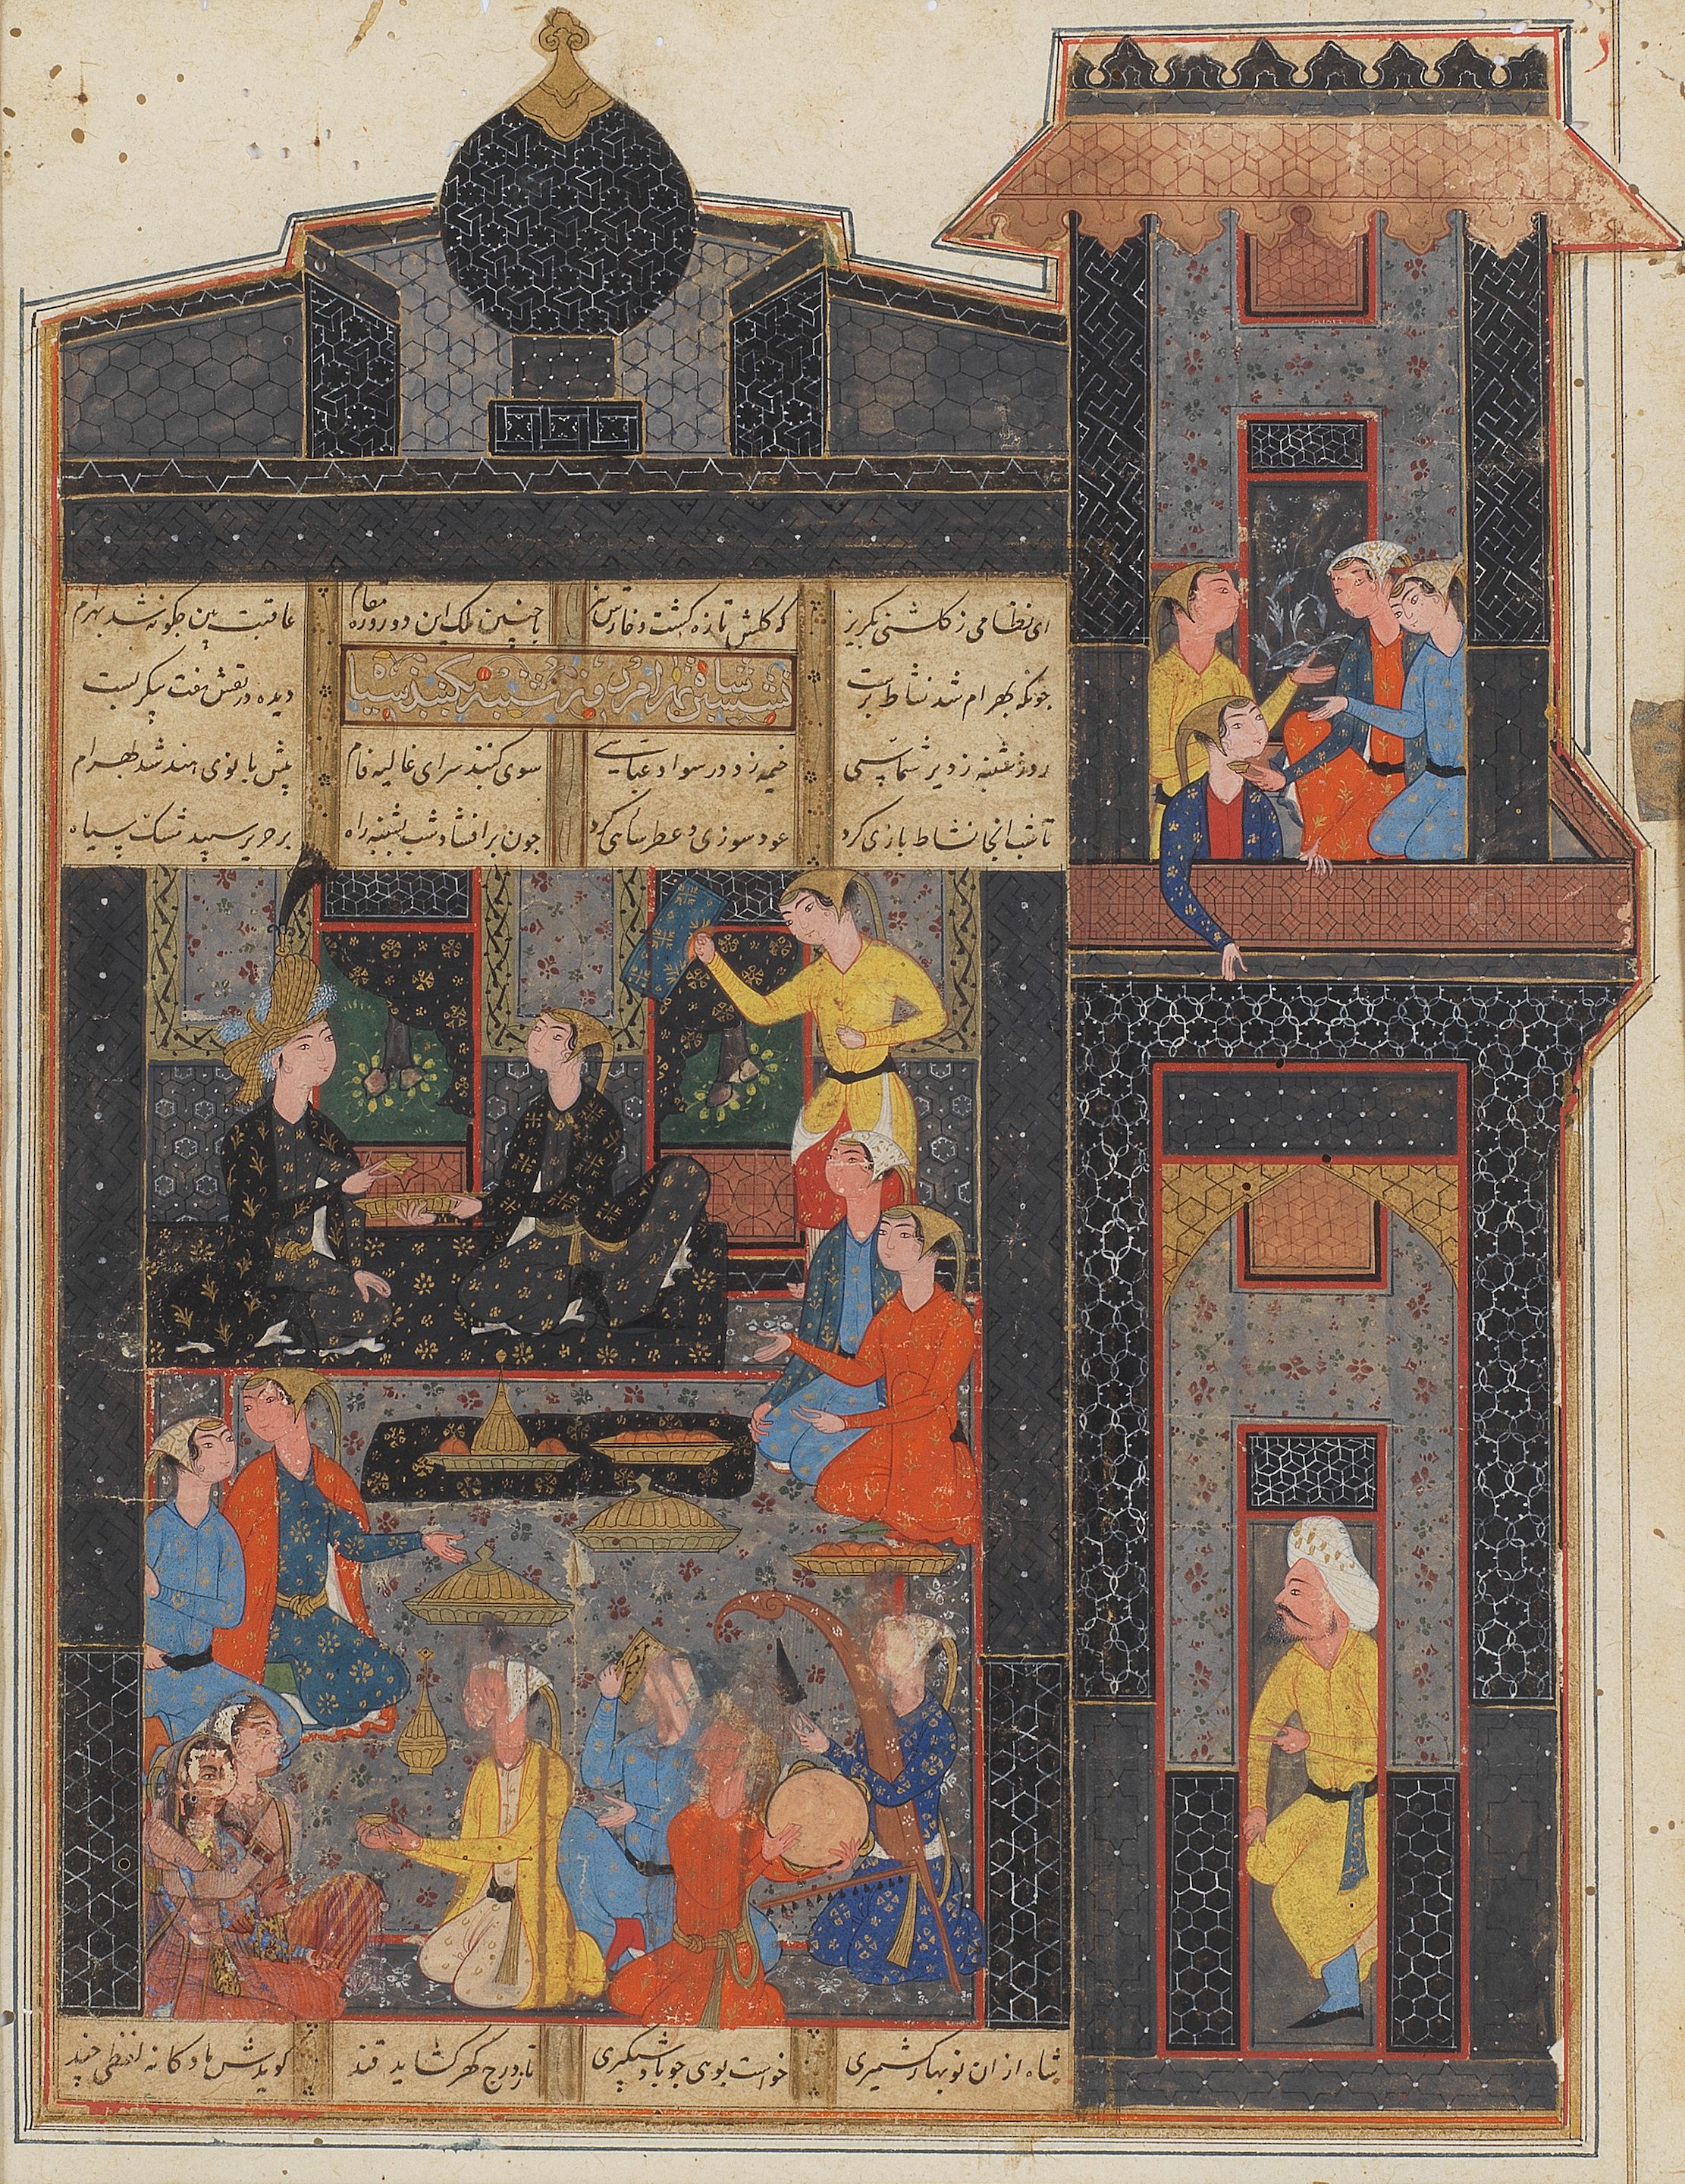 ای نظامی ز گلشنی بگریز که گلش تازه گشت و خارش تیز با چنین ملک این دو روزه مقام عاقبت بین چگونه شد بهرام
نشستن شاه بهرام روز شنبه بگنبد سیاه
چونکه بهرام شد نشاط پرست دیده در نقش هفت پیکر بست
روز شنبه ز دیر شماسی خیمه زد در سواد عباسی سوی گنبد سرای غالیه فام پیش بانوی هند شد بهرام
تا شب آنجا نشاط بازی کرد عود سوزی و عطر سایی کرد چون برافشاند شب بشنبه راه بر حریر سپید مشک سیاه
شاه از ان نوبهار کشمیری خواست بوی چو باد شبگیری تا ز درج گهر گشاید قند گویدش مادگانه لفظی چند